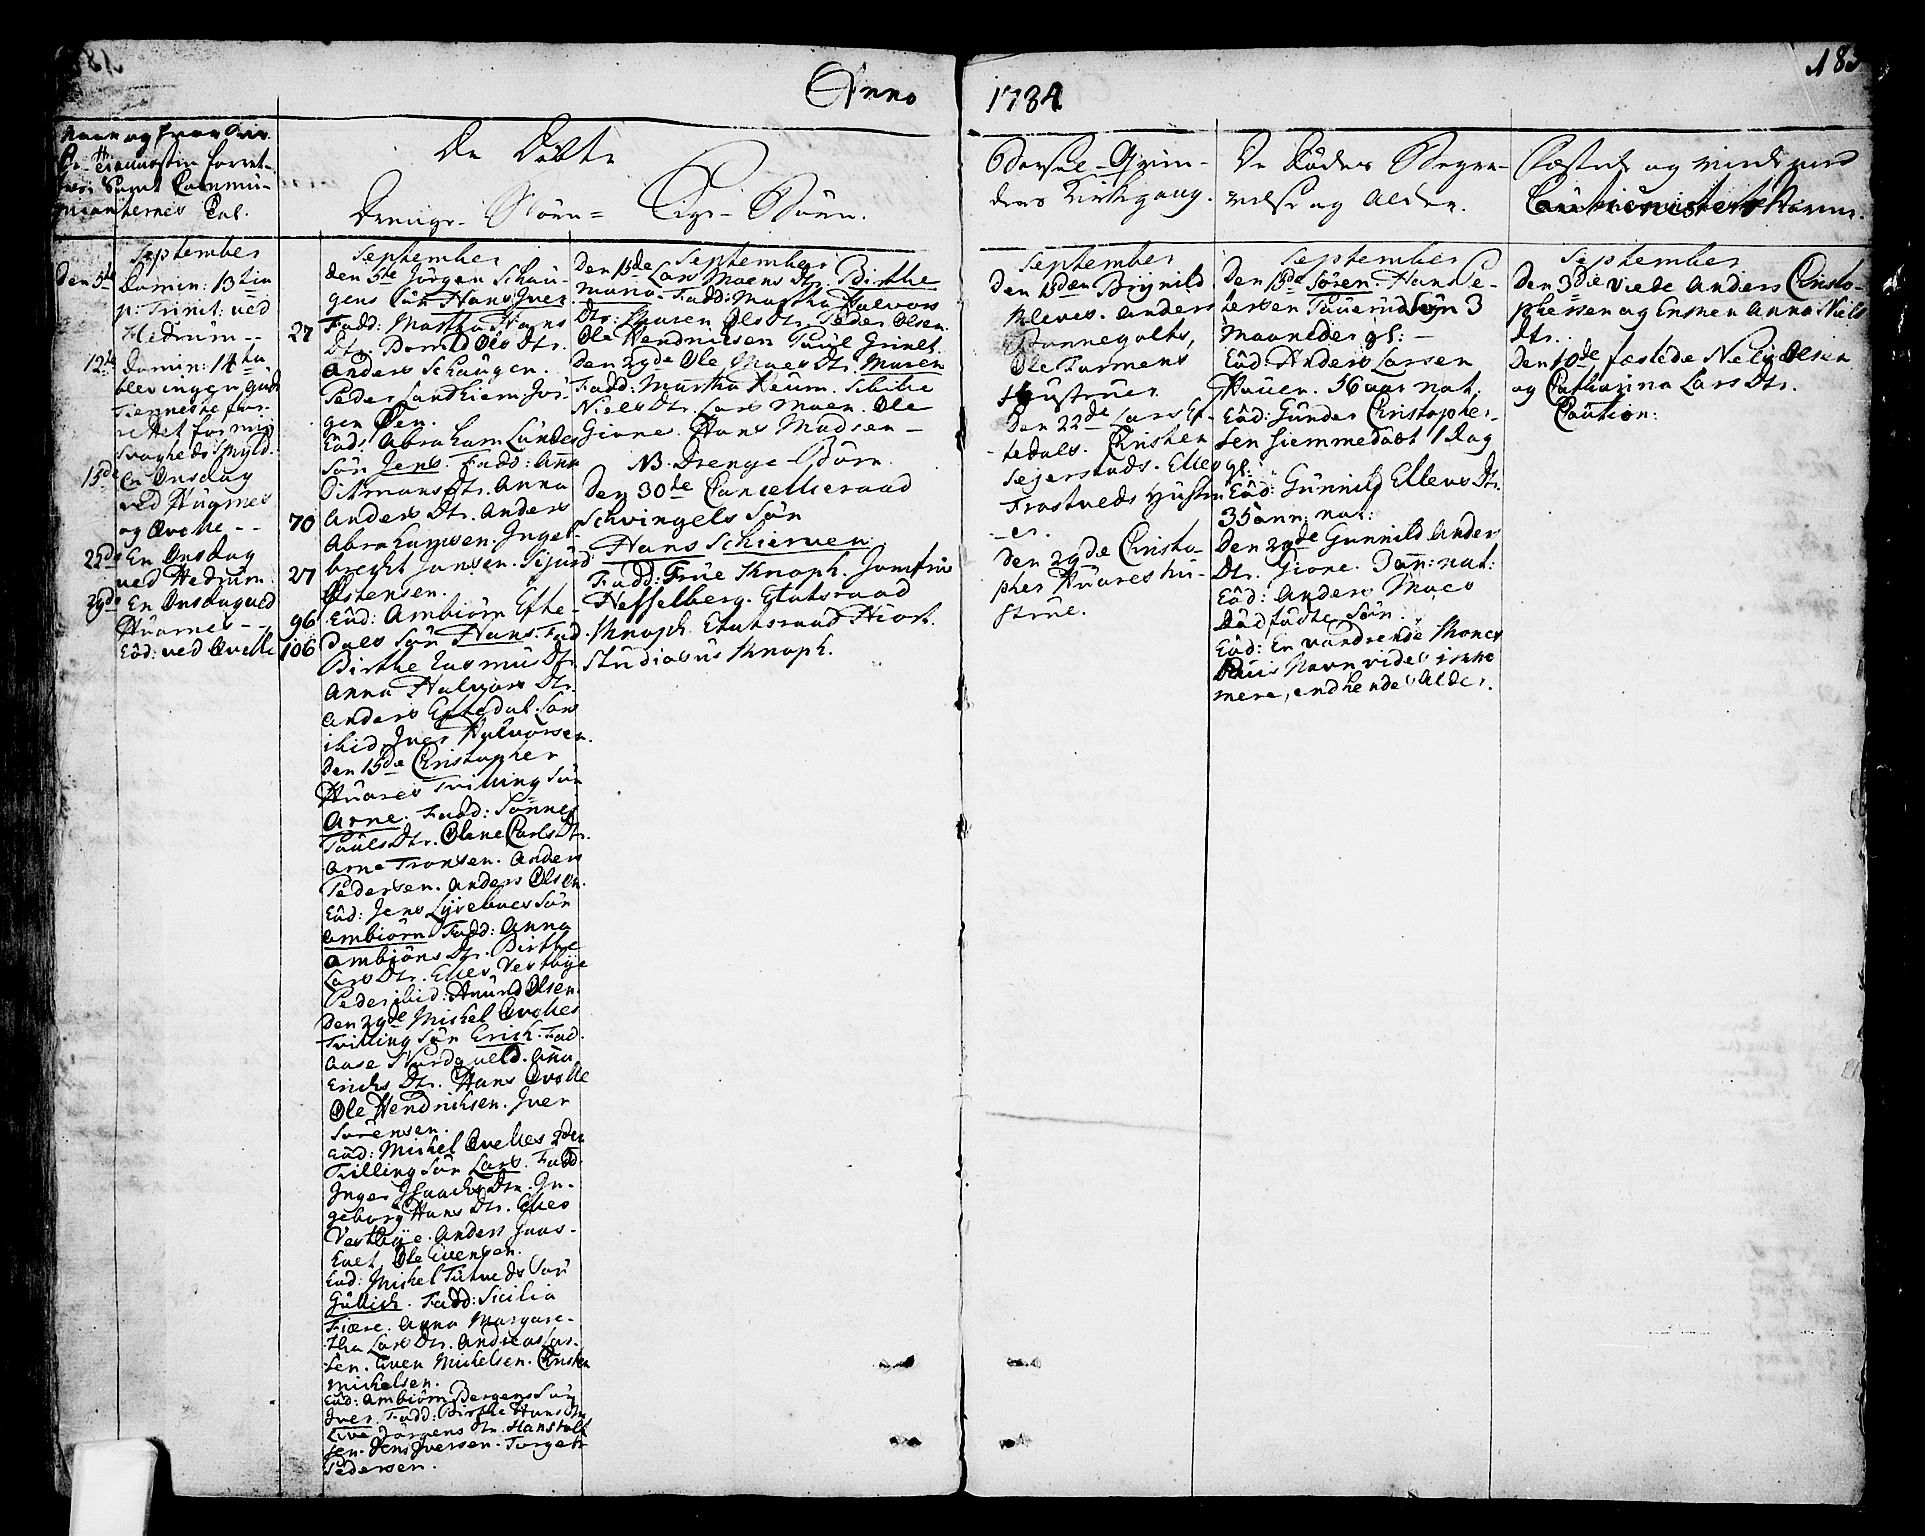 Anno 1784
183
Naar og
Gudstienesten forret-
tes Samt Commu-
nicanternes Tal.
De Döbte
Drenge-Börn= Pige-Börn.
Barsel-Qvin-
ders Kirkgang.
De Dödes Begra-
velse og Alder.
Fæstede og viede med
Cautionisters Navne.
September
Den 5te Domin: 13tia
p: Trinit: ved
Hedrum -- 27
12te Domin: 14ta
blev ingen guds
Tienneste for-
rettet for min
Svagheds Skyld.
15de En Onsdag
ved Hvarnes
og Qvelle -- 70
22de En Onsdag
ved Hedrum 27
29de En Onsdag ved
Hvarnes -- 96
Eod: ved Qvelle 106
September
Den 5te Jörgen Schau-
gens Sön Hans Iver
Fadd: Martha Hans
Dtr. Dorrid Ols Dtr.
Anders Schaugen.
Peder Sandhiem. Jör-
gen Öen.
Eod: Abraham Lunde
Sön Jens. Fadd: Anna
Ditmans Dtr. Anna
Anders Dtr. Anders
Abrahamsen. Ingel-
brecht Jansen. Sijurd
Östensen.
Eod: Ambiörn Efte-
dals Sön Hans. Fad.
Birthe Rasmus Dtr.
Anna Halvors Dtr.
Anders Eftedal. Lars
ibid. Iver Halvorsen.
Den 15de Christopher
Hvares Trilling Sön
Arne. Fadd: Sönnes
Pauls Dtr. Olene Carls Dtr.
Arne Tronsen. Anders
Pedersen. Anders Olsen.
Eod: Jens Lysebues Sön
Ambiörn Fadd: Anna
Ambiöns Dtr. Birthe
Lars Dtr. Elles Vestbye
Peder ibid: Anund Olsen.
Den 29de Michel Qvelles
Trilling Sön Erich. Fad.
Aase Nordqveld. Anna
Erichs Dtr. Hans Qvelle
Ole Hendrichsen. Iver
Sörensen.
Eod: Michel Qvelles 2den
Trilling Sön Lars. Fadd.
Inger Isaachs Dtr. In-
geborg Hans Dtr. Elles
Vestbye. Anders Jaas-
Ole Evensen.
Eod: Michel Tutveds Sön
Gullich. Fadd: Sicilia
Fiære. Anna Margare-
tha Lars Dtr. Andreas Lar-
sen. Even Michelsen. Christen
Michelsen.
Eod: Ambiörn Bergens Sön
Iver. Fadd: Birthe Hans Dtr
Live Jörgens Dtr. Hans
sen. Jens Iversen. Torger
Pedersen.
September
Den 15de Lars Moens Dtr. Birthe
Maria. Fadd: Martha Halvors
Dtr. Maren Ols Dtr. Peder Olsen.
Ole Hendrichsen Poul Grinet.
Den 29de Ole Moes Dtr. Maren
Fadd: Martha Heum. Sibille
Niels Dtr. Lars Moen. Ole
Gione. Hans Madsen -
NB. Drenge-Börn.
Den 30te Cancellieraad
Schvingels Sön
Hans Schierven
Fadd: Frue Knoph. Jomfrue
Hesselberg. Etatsraad
Knoph. Etatsraad Hiort.
Studiosus Knoph.
September
Den 15den Brynild
Kleves. Anders
Bonnegolts,
Ole Farmens
Hustruer
Den 22de Lars Ef-
tedals. Christen
Sejerstads. Elles
Frostveds Hustru-
er.
Den 29de Christo-
pher Hvares hu-
strue.
September
Den 15de Sören. Hans Pe-
tersen Sön 3
Maaneder gl: -
Eod Anders Larsen
Hauen. 56 aar nat.
Eod: Gunder Christopher-
sen hiemmedöbt 1 dag
gl:
Eod: Gunnild Ellevs Dtr.
35 ann: nat:
Den 29de Gunnild Anders
Dtr. Gione. 3 an: nat:
Eod: Anders Moes
Dödfödte Sön.
Eod: En vandrende Kone
hvis Navn vides ikke
mere, end hendes Alder.
September
Den 3die viede Anders Christo-
phersen og Enken Anna Niels
Dtr.
Den 10de fæstede Nels Olsen
og Catharina Lars Dtr.
Caution: